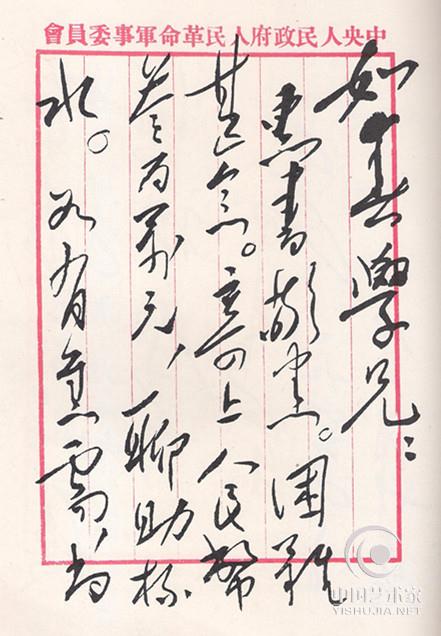 中央人民政府人民革命軍事委員會
如春學兄：
惠書敬悉。困難
甚念。寄上人民幣
叁百萬元，聊助杯
水。如有急需，尚
中国艺术家
YISHUJIA.NET